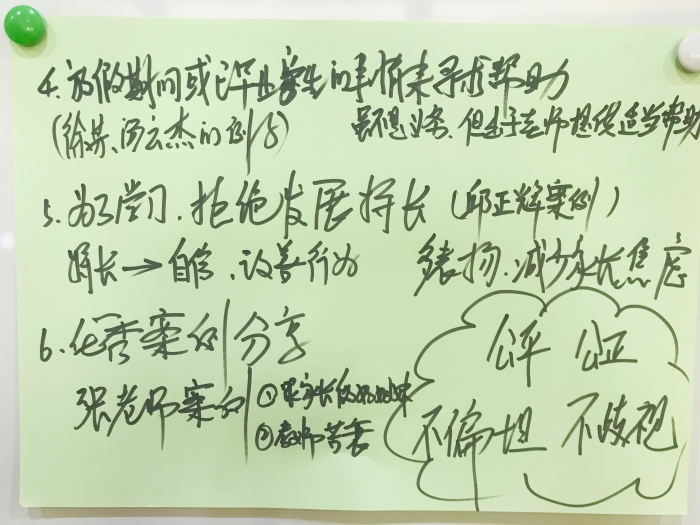 4.放假期间或已毕业学生的事情来寻求帮助
(徐英、汤云杰的例子)
虽不是义务、但出于老师提供适当帮助
5.为了学习.拒绝发展特长(邱正辉案例)
特长→自信、改善行为
多表扬.减少家长焦虑
6.优秀案例分享
张老师案例
①家长
②教师
公平 公正
不偏坦 不歧视